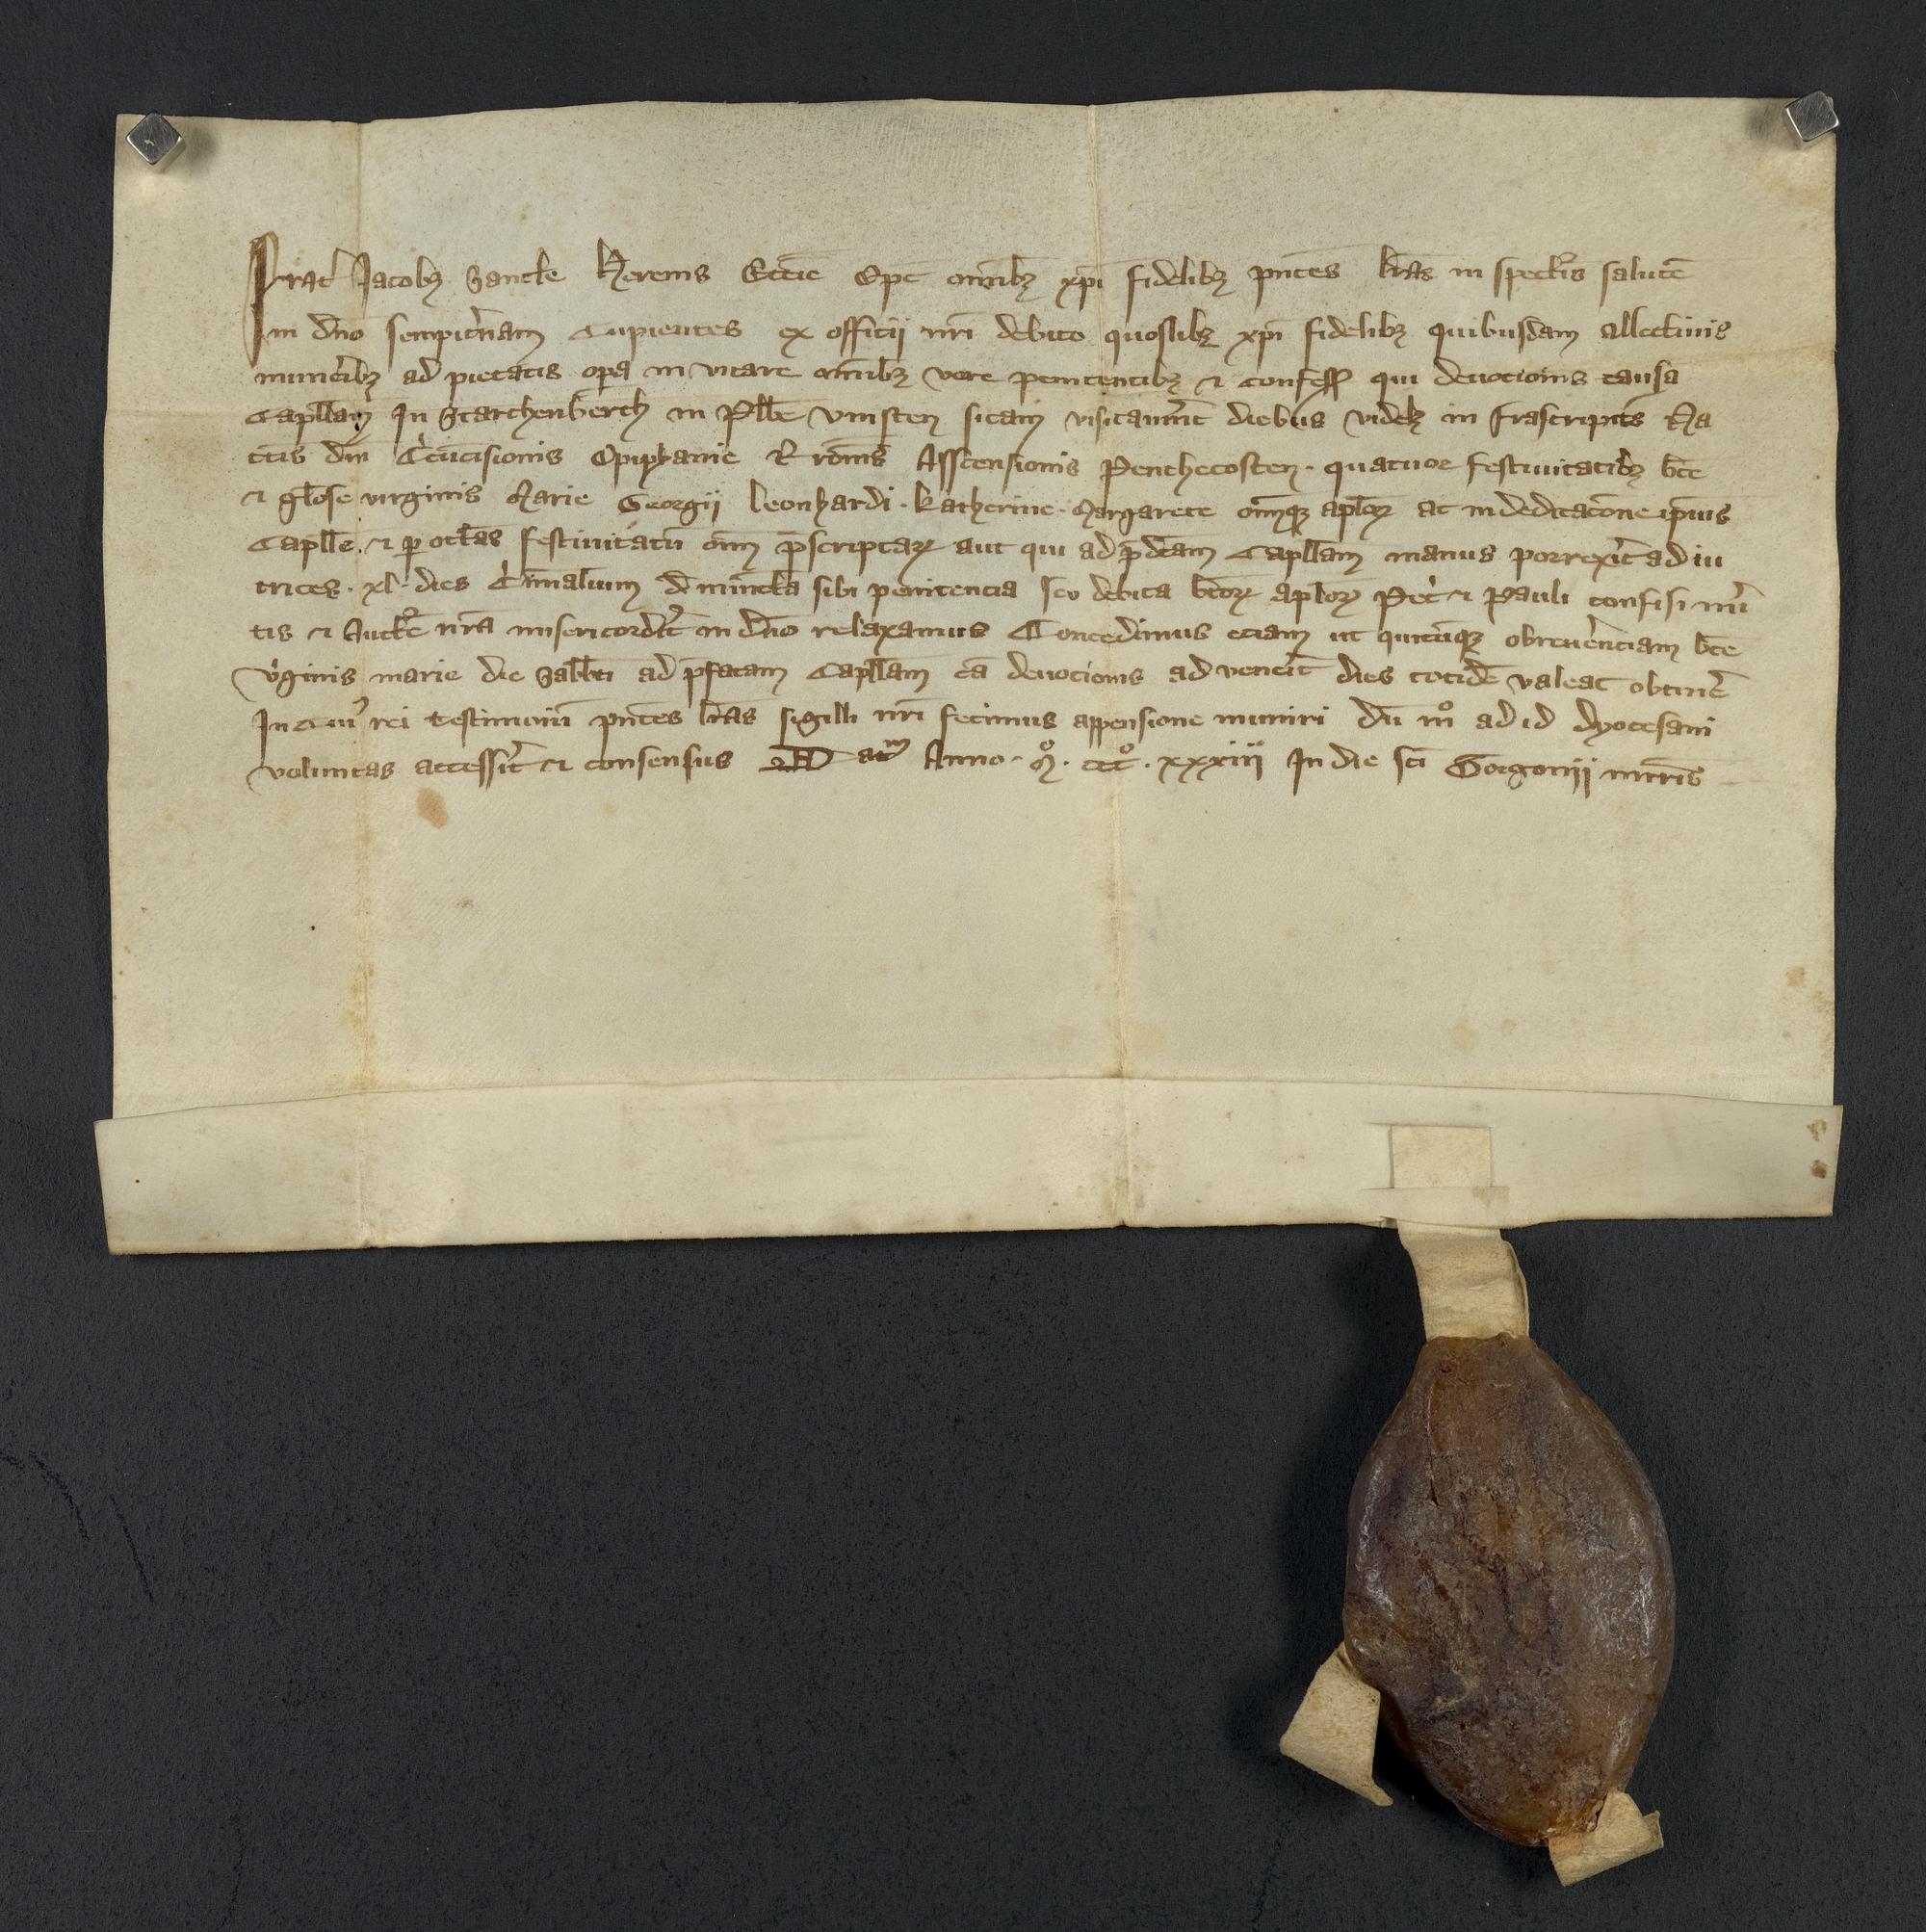 Frat Jacobꝫ Sancte Herenis Eccie Epc omnibꝫ xpi fidelibꝫ pntes lras in spectis salute
in dno sempitnam Cupientes ex officij nri debito quoslibꝫ xpi fidelibꝫ quibusdam allectivis
muneribꝫ ad pietatis opa in vitare omnibꝫ vere penitentibꝫ et confess qui devotionis causa
Capllam In Starchenberch in Plbe Vmsten sitam visitaverint diebus videlꝫ in frascriptis Na
tits dni Circucisionis Epiphanie Rromis Asscensionis Penthecosten · quatuor festivitatibꝫ bte
et gliose virginis Marie Georgij Leonhardi · Katherine · Margarete omniqꝫ aploꝝ at in dedicacone ipius
Caplle · et p octas festivitatu omn pscriptaꝝ aut qui ad pdcam Capllam manus porrexit ad iu
trices · xl · dies Criminalium de iniuncta sibi penitencia seu debita btoꝝ aploꝝ Pet et Pauli confisi mi
tis et Aucte nra misericordit in dno relaxamus Concedimus etiam ut quicuqꝫ ob reverenciam bte
Virginis marie die Sabbti ad pfatam Capllam ca devotionis ad venerit dies totide valeat obtine
In Cui rei testimoniu pntes lras sigilli nri fecimus appensione muniri Du mo ad id dyocesani
voluntas accesserit et consensus Datm Anno · Mo · ccco · xxxiiii In die sci Gorgonij mrtris